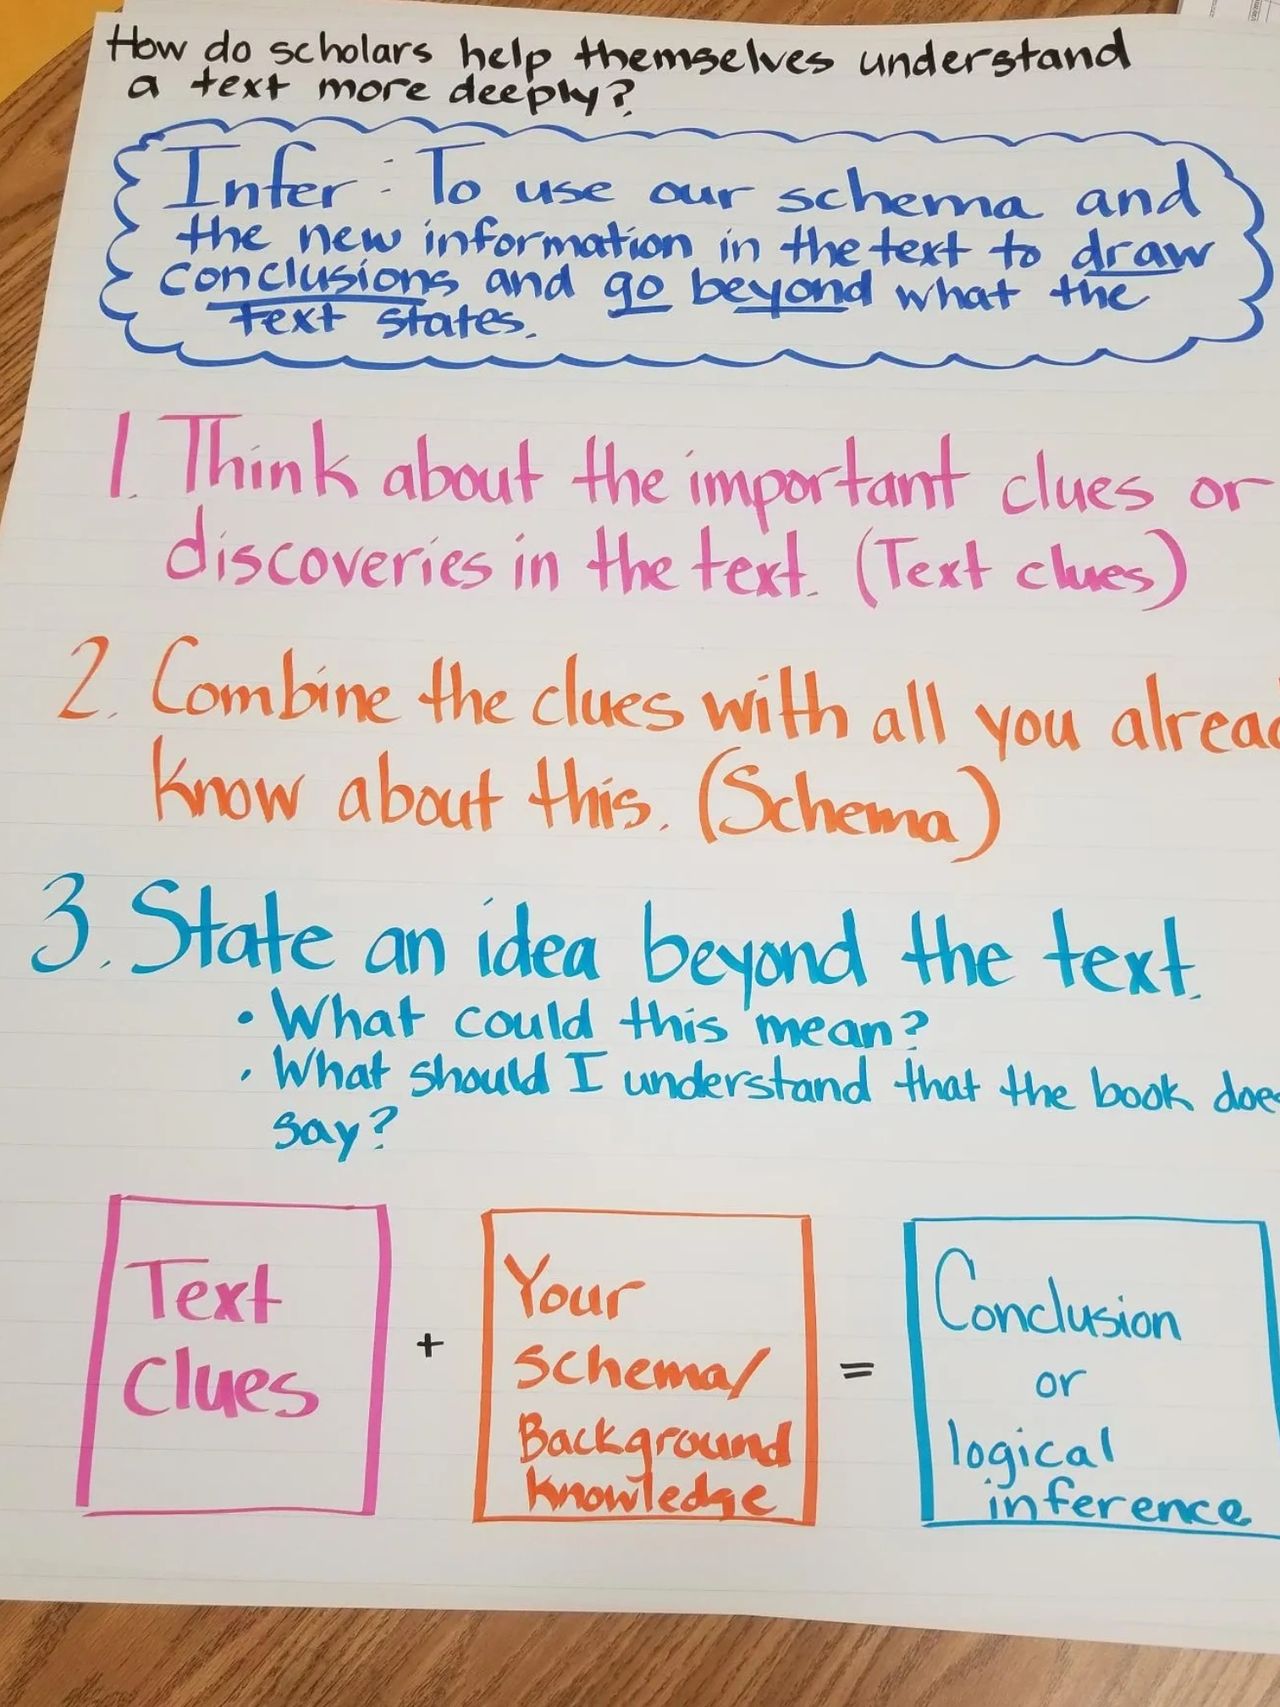 How do scholars help themselves understand
a text more deeply?
Infer: To use our schema and
the new information in the text to draw
conclusions and go beyond what the
text states.
1. Think about the important clues or
discoveries in the text. (Text clues)
2. Combine the clues with all you alread
know about this. (Schema)
3. State an idea beyond the text.
• What could this mean?
• What should I understand that the book doe
say?
Text
Clues
+
Your
schema/
Background
knowledge
=
Conclusion
or
logical
inference